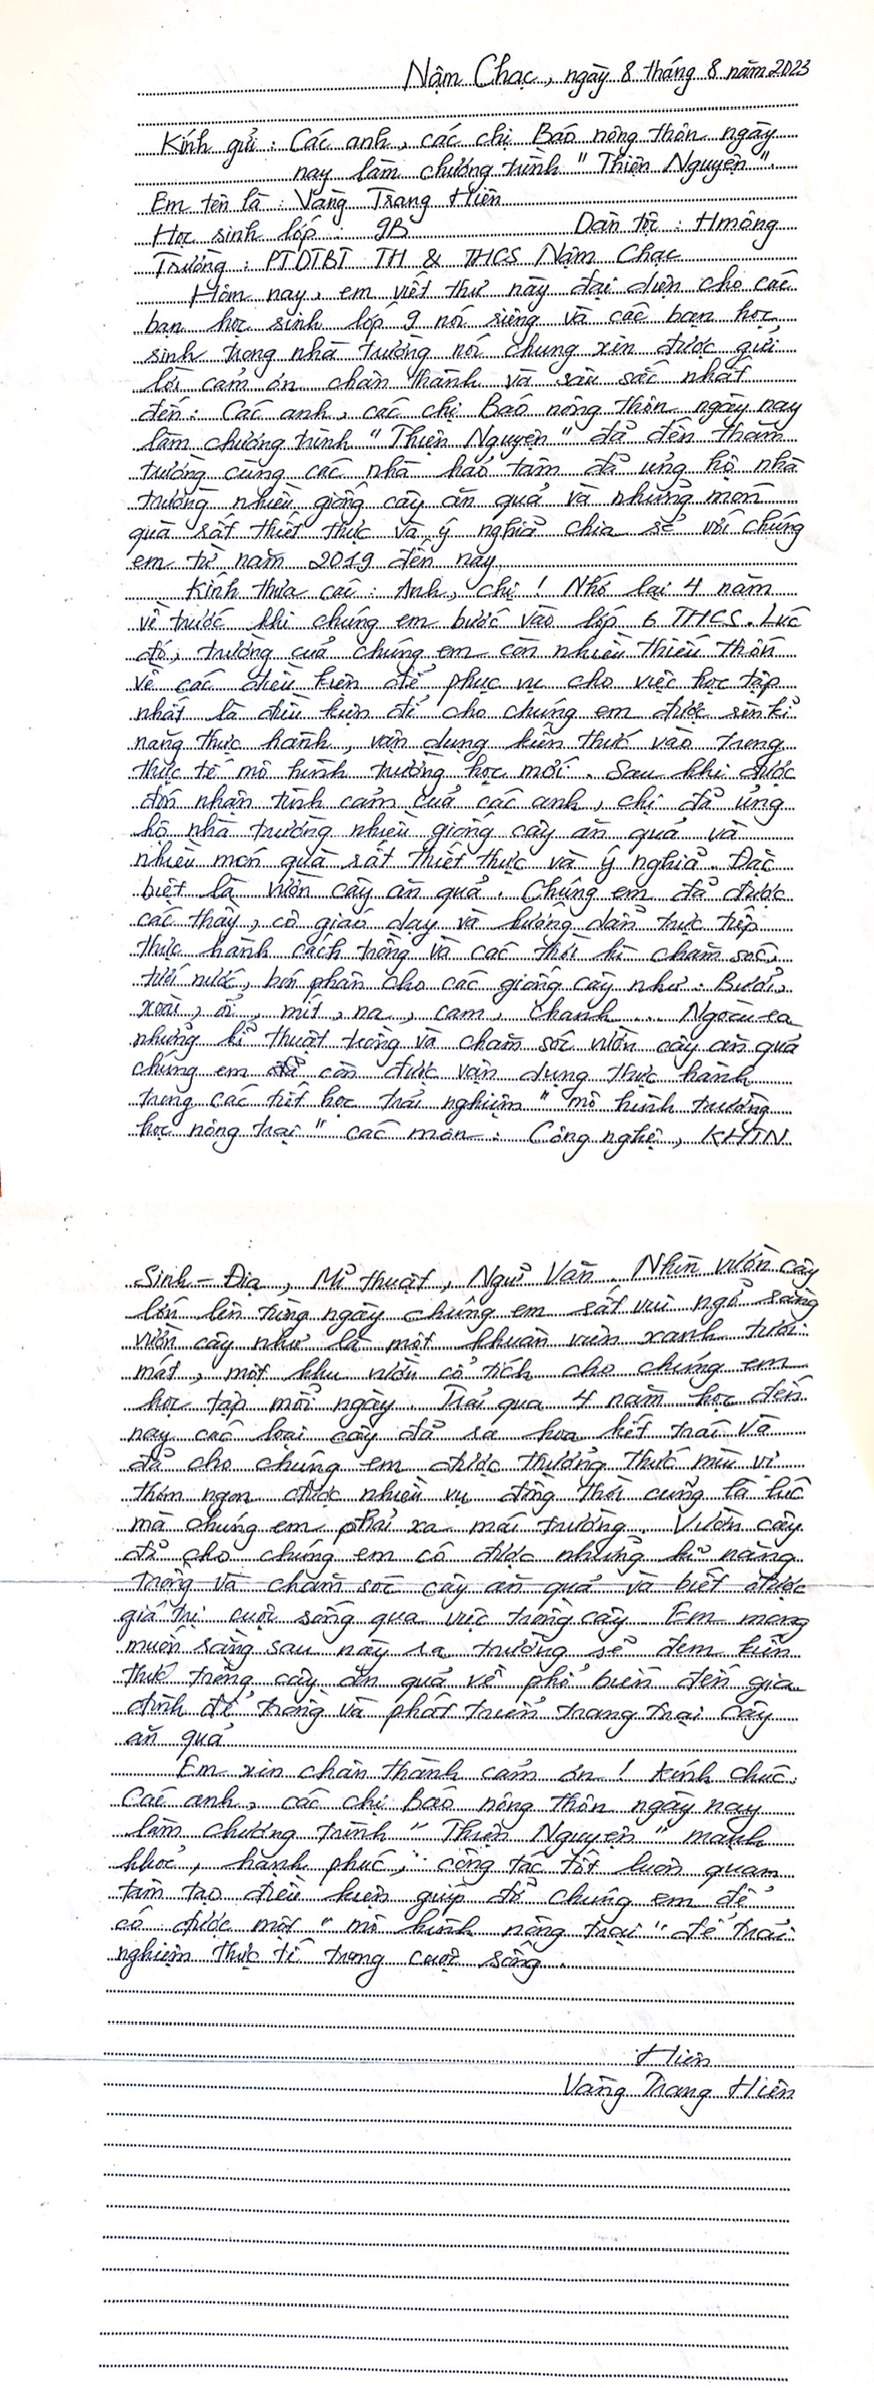 Nậm Chạc, ngày 8 tháng 8 năm 2023
Kính gửi : Các anh, các chị Báo nông thôn ngày
nay làm chương trình " Thiện Nguyện ".
Em tên là : Vàng Trang Hiên
Học sinh lớp : 9B Dân tộc : Hmông
Trường : PTDTBT TH & THCS Nậm Chạc
Hôm nay, em viết thư này đại diện cho các
bạn học sinh lớp 9 nói riêng và các bạn học
sinh trong nhà trường nói chung xin được gửi
lời cảm ơn chân thành và sâu sắc nhất
đến : Các anh, các chị Báo nông thôn ngày nay
làm chương trình " Thiện Nguyện " đã đến thăm
trường cùng các nhà hảo tâm đã ủng hộ nhà
trường nhiều giống cây ăn quả và những món
quà rất thiết thực và ý nghĩa chia sẻ với chúng
em từ năm 2019 đến nay.
Kính thưa các : Anh, chị ! Nhớ lại 4 năm
về trước khi chúng em bước vào lớp 6 THCS. Lúc
đó, trường của chúng em còn nhiều thiếu thốn
về các điều kiện để phục vụ cho việc học tập
nhất là điều kiện để cho chúng em được rèn kĩ
năng thực hành, vận dụng kiến thức vào trong
thực tế mô hình trường học mới. Sau khi được
đón nhận tình cảm của các anh, chị đã ủng
hộ nhà trường nhiều giống cây ăn quả và
nhiều món quà rất thiết thực và ý nghĩa. Đặc
biệt là vườn cây ăn quả. Chúng em đã được
các thầy, cô giáo dạy và hướng dẫn trực tiếp
thực hành cách trồng và các thời kì chăm sóc,
tưới nước, bón phân cho các giống cây như : Bưởi,
xoài, ổi, mít, na, cam, chanh ... Ngoài ra
những kĩ thuật trồng và chăm sóc vườn cây ăn quả
chúng em còn được vận dụng thực hành
trong các tiết học trải nghiệm " mô hình trường
học nông trại " các môn : Công nghệ, KHTN
Sinh - Địa, Mĩ thuật, Ngữ Văn. Nhìn vườn cây
lớn lên từng ngày chúng em rất vui ngỡ rằng
vườn cây như là một khuân viên xanh tươi
mát, một khu vườn cổ tích cho chúng em
học tập mỗi ngày. Trải qua 4 năm học đến
nay các loại cây đã ra hoa kết trái và
đã cho chúng em được thưởng thức mùi vị
thơm ngon được nhiều vụ đồng thời cũng là lúc
mà chúng em phải xa mái trường. Vườn cây
đã cho chúng em có được những kĩ năng
trồng và chăm sóc cây ăn quả và biết được
giá trị cuộc sống qua việc trồng cây. Em mong
muốn rằng sau này ra trường sẽ đem kiến
thức trồng cây ăn quả về phổ biến đến gia
đình để trồng và phát triển trang trại cây
ăn quả
Em xin chân thành cảm ơn ! Kính chúc :
Các anh, các chị Báo nông thôn ngày nay
làm chương trình " Thiện Nguyện " mạnh
khoẻ, hạnh phúc, công tác tốt luôn quan
tâm tạo điều kiện giúp đỡ chúng em để
có được một " mô hình nông trại " để trải
nghiệm thực tế trong cuộc sống.
Hiên
Vàng Trang Hiên